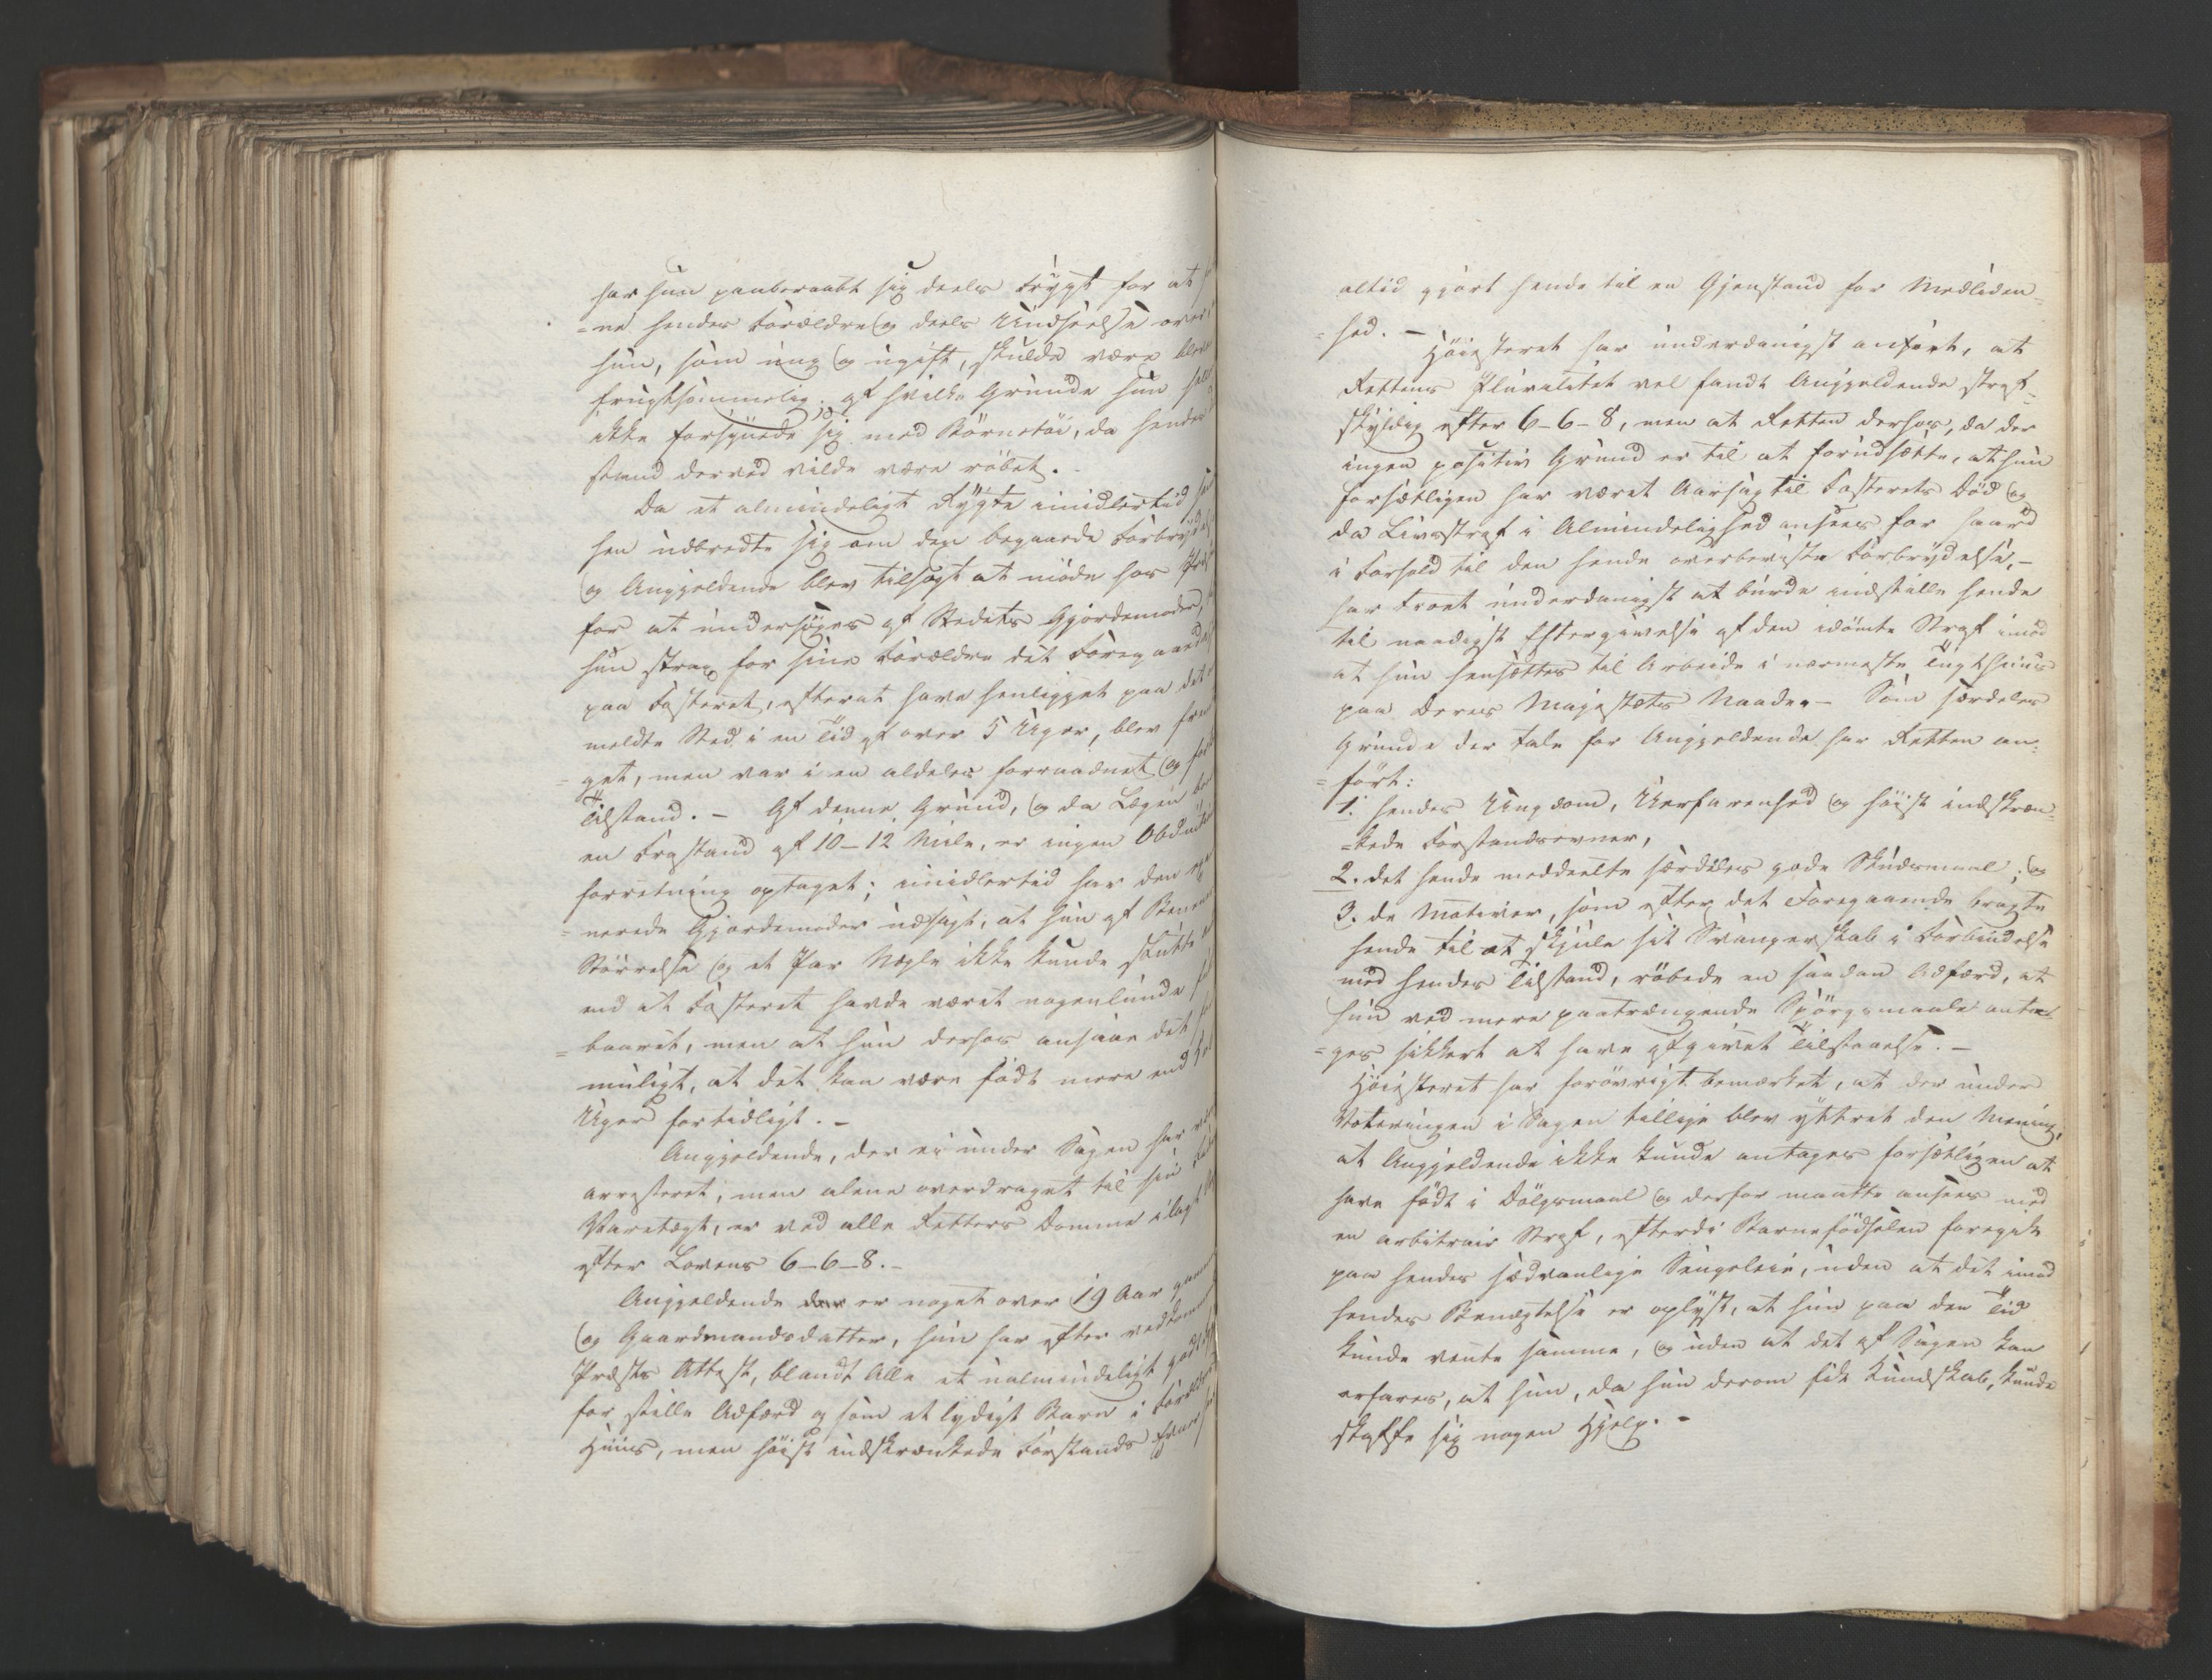 har hun paaberaabt sig deels Frygt for at
=ne hendes Forældre og deels Undseelse over
hun, som ung og ugift, skulde være bleve
frugtsommelig; af hvilke Grunde hun hel
ikke forsynede sig med Börnetöi, da hendes
stand derved vilde være röbet. -
Da et almindeligt Rygte imidlertid
hen udbredte sig om den begaaede Forbryd
og Angjeldende blev tilsagt at möde hos
for at undersöges af Stedets Gjordemoder,
hun strax for sine Forældre det Foregaaede
paa Fosteret, efterat have henligget paa det
meldte Sted i en Tid af over 5 Uger, blev
get, men var i en aldeles forraadnet og
Tilstand. - Af denne Grund, og da Lægen
en Frastand af 10-12 Mile, er ingen Obductions
forretning optaget; imidlertid har den
nerede Gjordemoder udsagt, at hun af
Störrelse og et Par Negle ikke kunde skutte
end at Fosteret havde været nogenlunde
=baaret, men at hun derhos ansaae det
muligt, at det kan være födt mere end
Uger fortidligt. -
Angjeldende, der ei under Sagen har
arresteret, men alene overdraget til sin
Varetægt, er ved alle Retters Domme ilagt
efter Lovens 6-6-8. -
Angjeldende er noget over 19 Aar gammel
og Gaardmandsdatter, hun har efter vedkomm
Præsts Attest, blandt Alle et ualmindeligt godt
for stille Adfærd og som et lydigt Barn i Foræld
Huus, men höist indskrænkede Forstands Evner
altid gjort hende til en Gjenstand for Medliden=
=hed. -
Höiesteret har underdanigst anfört, at
Rettens Pluralitet vel fandt Angjeldende straf=
skyldig efter 6-6-8, men at Retten derhos, da der
ingen positiv Grund er til at forudsætte, at hun
forsætligen har været Aarsag til Fosterets Död og
da Livsstraf i Almindelighed ansees for haard
i Forhold til den hende overbeviste Forbrydelse, -
har troet underdanigst at burde indstille hende
til naadigst Eftergivelse af den idömte Straf imod
at hun hensættes til Arbeide i nærmeste Tugthuus
paa Deres Majestæts Naade. - Som særdeles
Grunde der tale for Angjeldende har Retten an=
=fört:
1. hendes Ungdom, Uerfarenhed og höist indskræn=
=kede Forstandsevner,
2. det hende meddeelte særdeles gode Skudsmaal; og
3. de Motiver, som efter det Foregaaende bragte
hende til at skjule sit Svangerskab i Forbindelse
med hendes Tilstand, röbede en saadan Adfærd, at
hun ved mere paatrængende Spörgsmaale anta=
=ges sikkert at have afgivet Tilstaaelse. -
Höiesteret har forövrigt bemærket, at der under
Voteringen i Sagen tillige blev yttret den Mening,
at Angjeldende ikke kunde antages forsætligen at
have födt i Dölgsmaal og derfor maatte ansees med
en arbitrair Straf, efterdi Barnefödselen foregik
paa hendes sædvanlige Sengeleie, uden at det imod
hendes Benægtelse er oplyst, at hun paa den Tid
kunde vente samme, og uden at det af Sagen kan
erfares, at hun, da hun derom fik Kundskab, kunde
skaffe sig nogen Hjelp. -